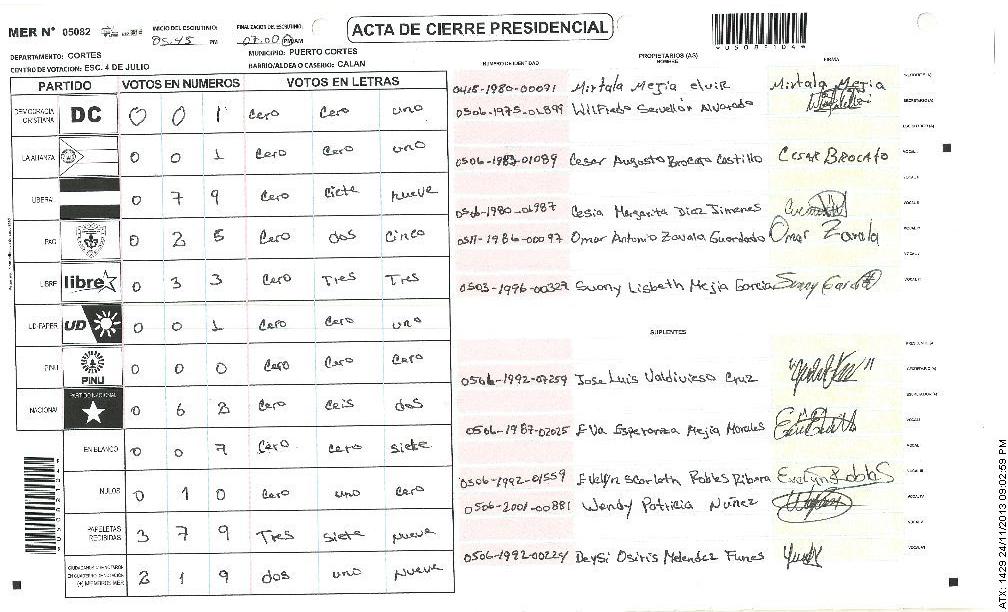 MER Nº 05082
INICIO DEL ESCRUTINIO: 05:45 PM
FINALIZACION DEL ESCRUTINIO: 07:00 PM
ACTA DE CIERRE PRESIDENCIAL
DEPARTAMENTO: CORTES
MUNICIPIO: PUERTO CORTES
CENTRO DE VOTACION: ESC. 4 DE JULIO
BARRIO/ALDEA O CASERIO: CALAN
PARTIDO VOTOS EN NUMEROS VOTOS EN LETRAS
DEMOCRACIA CRISTIANA DC 0 0 1 Cero Cero uno
LA ALIANZA 0 0 1 Cero Cero uno
LIBERAL 0 7 9 Cero Ciete nueve
PAC 0 2 5 Cero dos Cinco
LIBRE libre 0 3 3 Cero Tres Tres
UD-FAPER UD 0 0 1 Cero Cero uno
PINU PINU 0 0 0 Cero Cero Cero
NACIONAL PARTIDO NACIONAL 0 6 2 Cero Ceis dos
EN BLANCO 0 0 7 Cero Cero siete
NULOS 0 1 0 Cero uno Cero
PAPELETAS RECIBIDAS 3 7 9 Tres siete nueve
2 1 9 dos uno nueve
NUMERO DE IDENTIDAD
PROPIETARIOS (AS)
NOMBRE
FIRMA
0418-1980-00091 Mirtala Mejia elvir Mirtala Mejia
0506-1975-01899 Wilfredo Servellón Alvarado
SECRETARIO(A)
ESCRUTADOR(A)
0506-1983-01089 Cesar Augusto Brocato Castillo CESAR BROCATO
VOCAL I
0506-1980-01987 Cesia Margarita Diaz Jimenes
0511-1986-00097 Omar Antonio Zavala Guardado Omar Zavala
0503-1996-00327 Suany Lisbeth Mejia Garcia
SUPLENTES
0506-1992-02259 Jose Luis Valdivieso Cruz
0506-1987-02025 Eva Esperanza Mejia Morales
0506-1992-01559 Evelyn Scarleth Robles Ribera Evelyn Robles
0506-2001-00881 Wendy Patricia Nuñez
0506-1992-00224 Deysi Osiris Melendez Funes
ATX: 1429 24/11/2013 09:02:59 PM